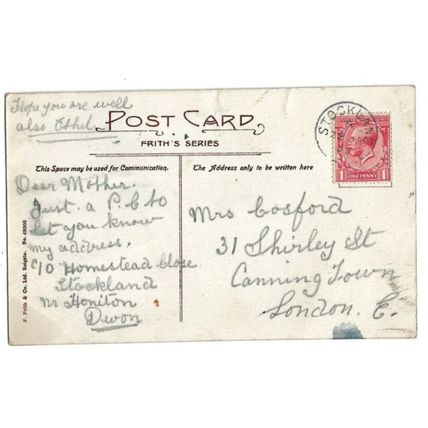 Hope you are well
also Ethel
POST CARD
FRITH'S SERIES
This Space may be used for Communication.
The Address only to be written here
STOCKLAN
ONE PENNY
1 1
Dear Mother.
Just a P.C to
let you know
my address,
c/o Homestead Close
Stockland
nr Honiton
Devon
Mrs Cosford
31 Shirley St
Canning Town
London. E.
F. Frith & Co. Ltd. Reigate. No.